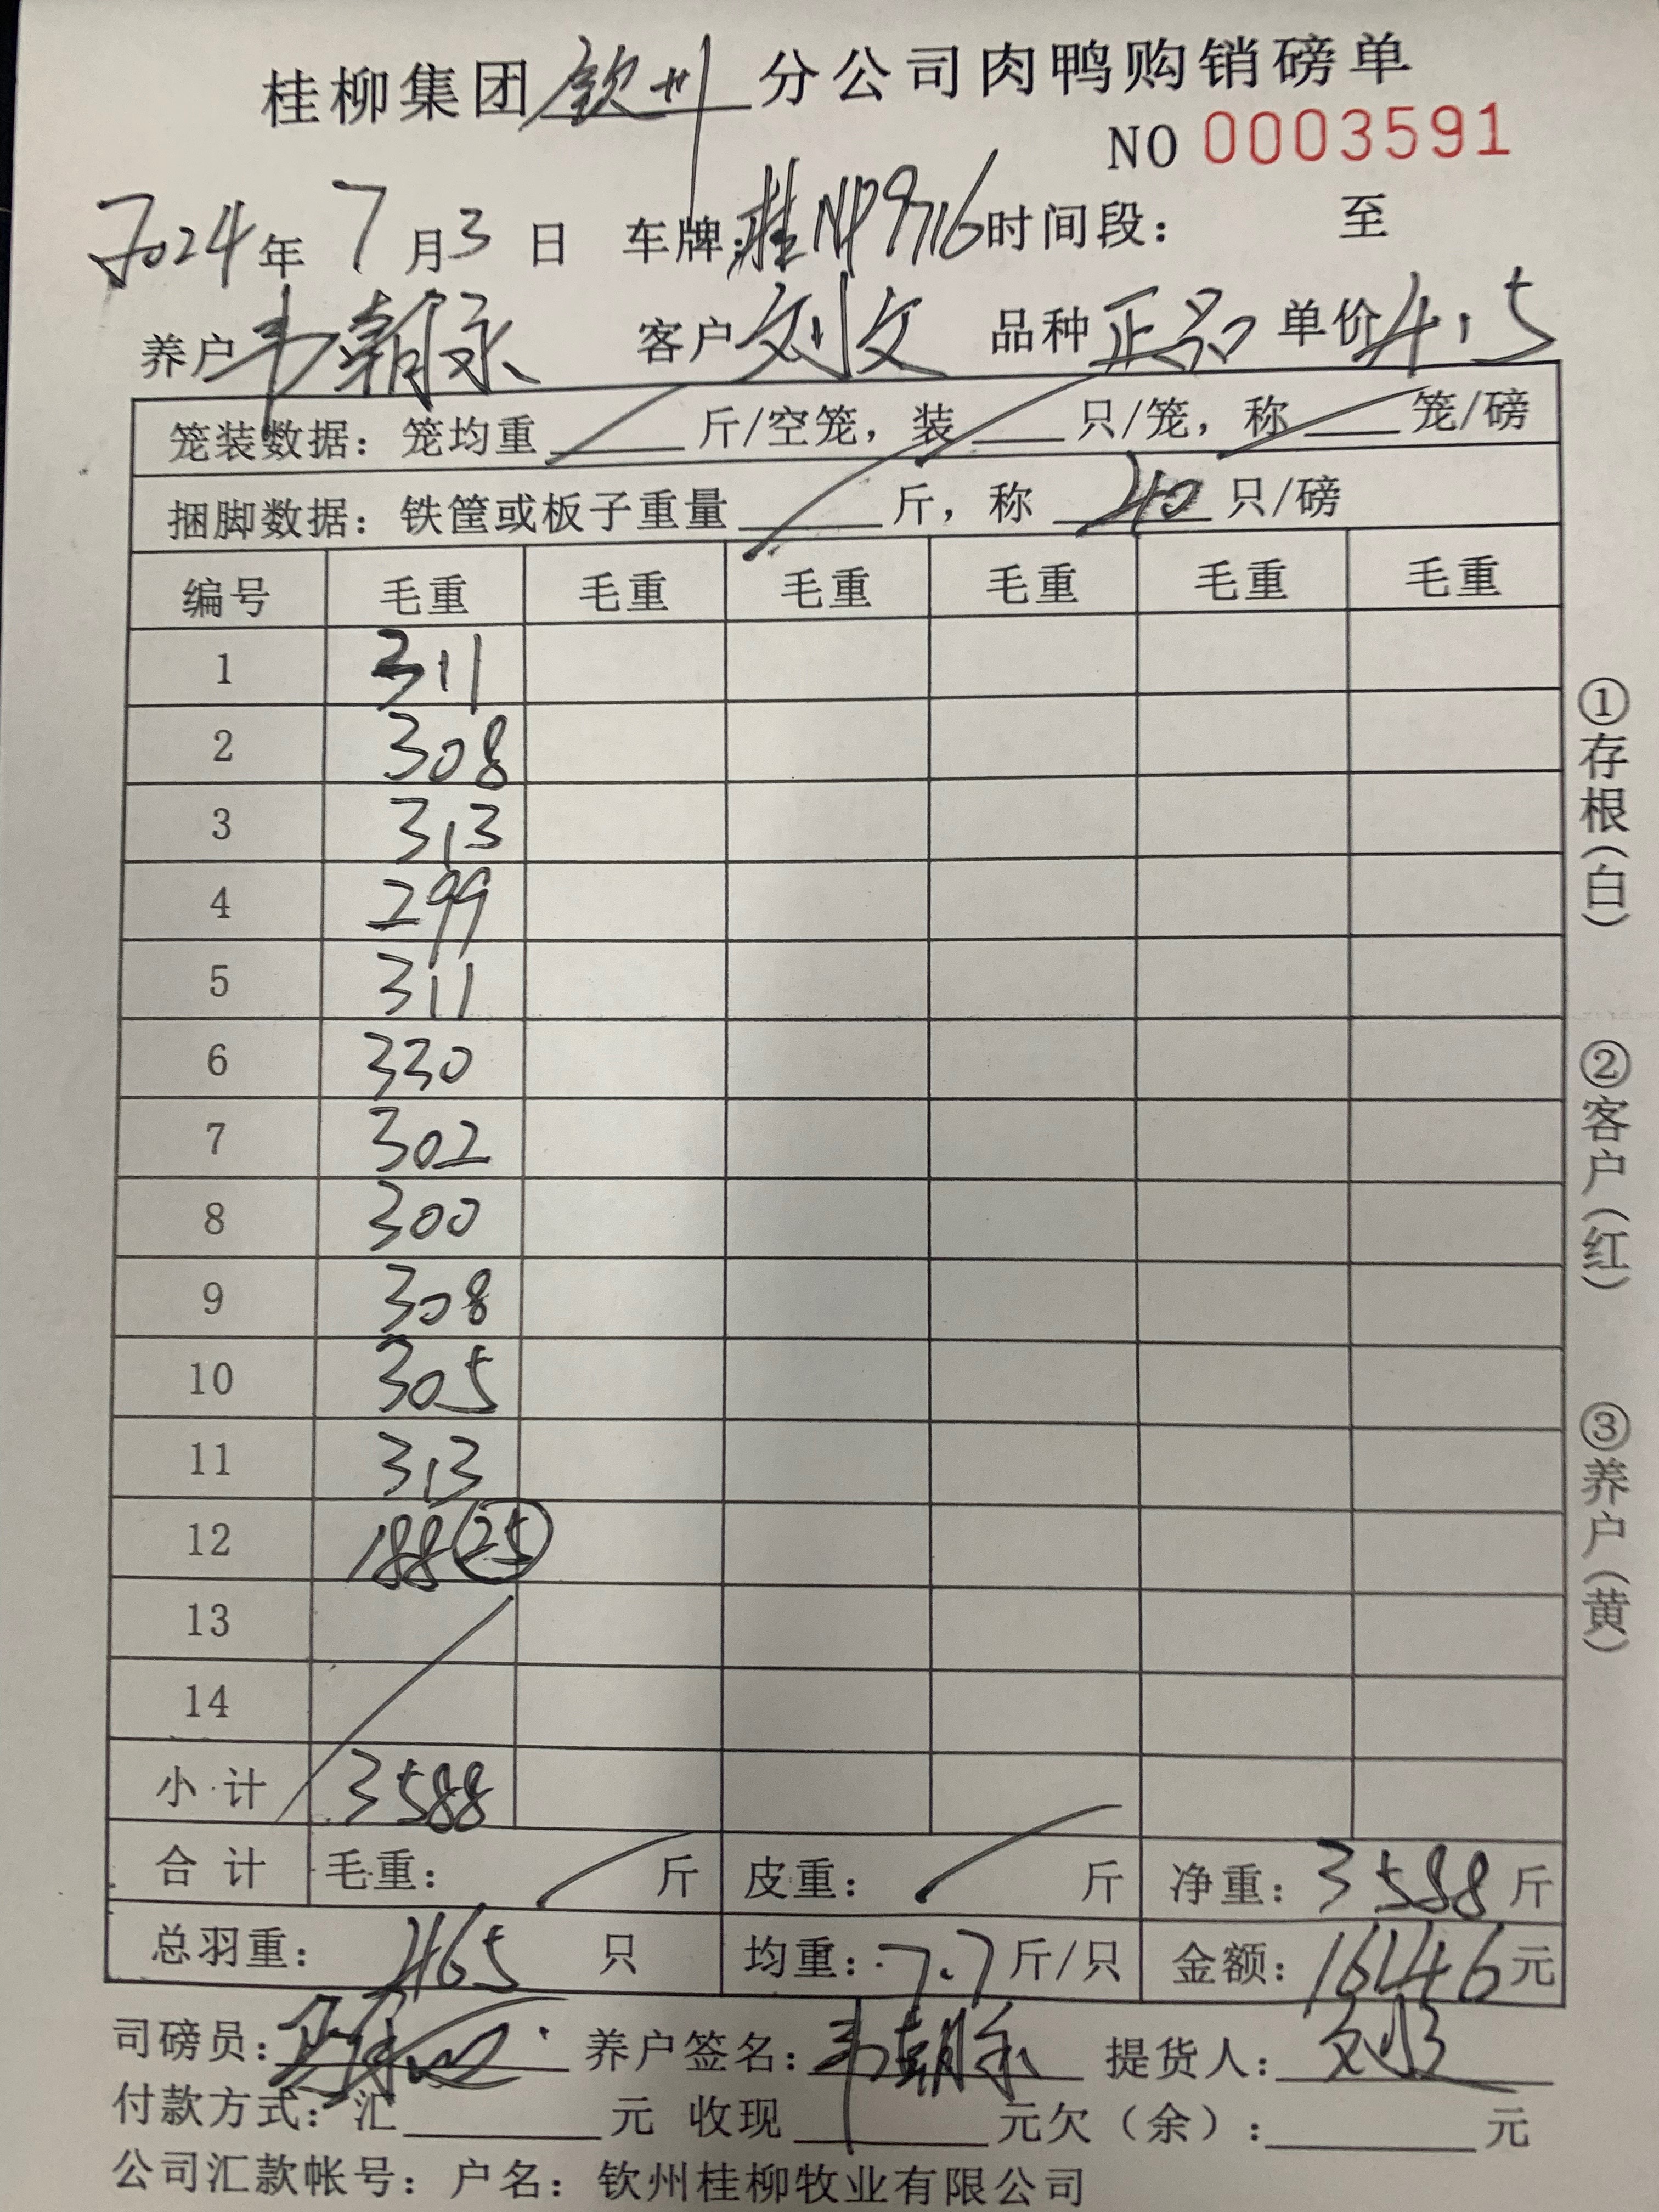 桂柳集团钦州分公司肉鸭购销磅单
NO 0003591
2024年7月3日 车牌:桂NP9716时间段: 至
养户韦朝永 客户刘文 品种正品 单价4.5
笼装数据: 笼均重 斤/空笼, 装 只/笼, 称 笼/磅
捆脚数据: 铁筐或板子重量 斤, 称 40 只/磅
编号 毛重 毛重 毛重 毛重 毛重 毛重
1 311
2 308
3 313
4 299
5 311
6 330
7 302
8 300
9 308
10 305
11 313
12 188 25
13
14
小计 3588
合计 毛重: 斤 皮重: 斤 净重: 3588斤
总羽重: 465 只 均重: 7.7斤/只 金额: 16146元
司磅员: 养户签名: 韦朝永 提货人: 刘文
付款方式: 汇 元 收现 元欠(余): 元
公司汇款帐号: 户名: 钦州桂柳牧业有限公司
①存根(白)
②客户(红)
③养户(黄)